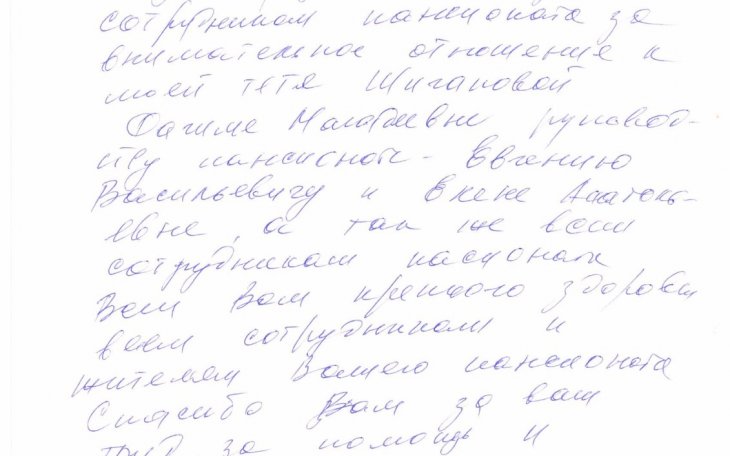 сотрудникам пансионата за
внимательное отношение к
моей тётя Шигаповой
руковод-
ству пансионат - Евгению
Васильевичу и Елене Анатоль-
евне, а так же всем
сотрудникам
Всем Вам крепкого здоровья
всем сотрудникам и
жителям Вашего пансионата
Спасибо Вам за ваш
труд за помощь и